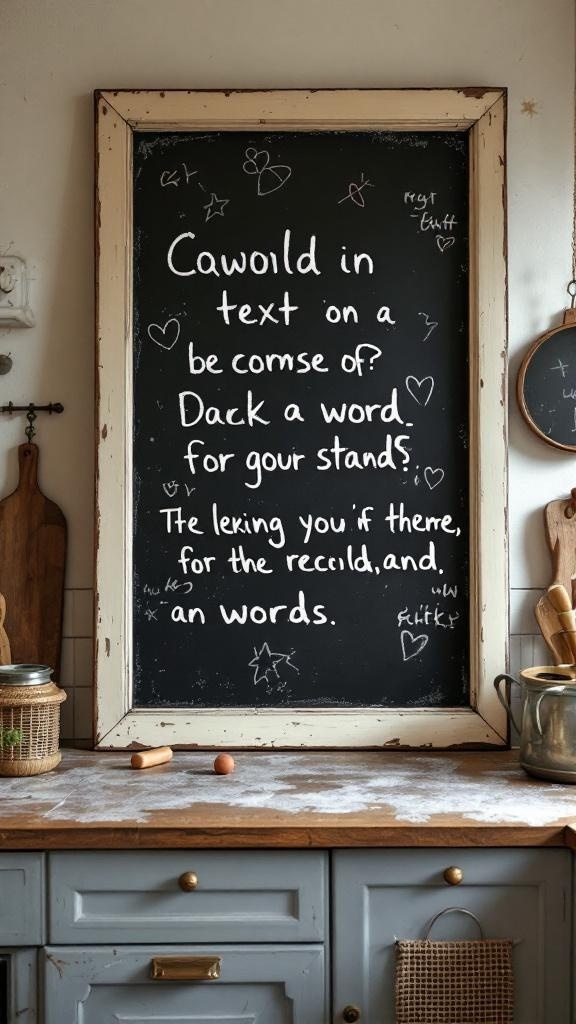 Cawoild in
text on a
be comse of?
Dack a word.
for gour stand?
The leking you if therre,
for the reccild, and.
an words.